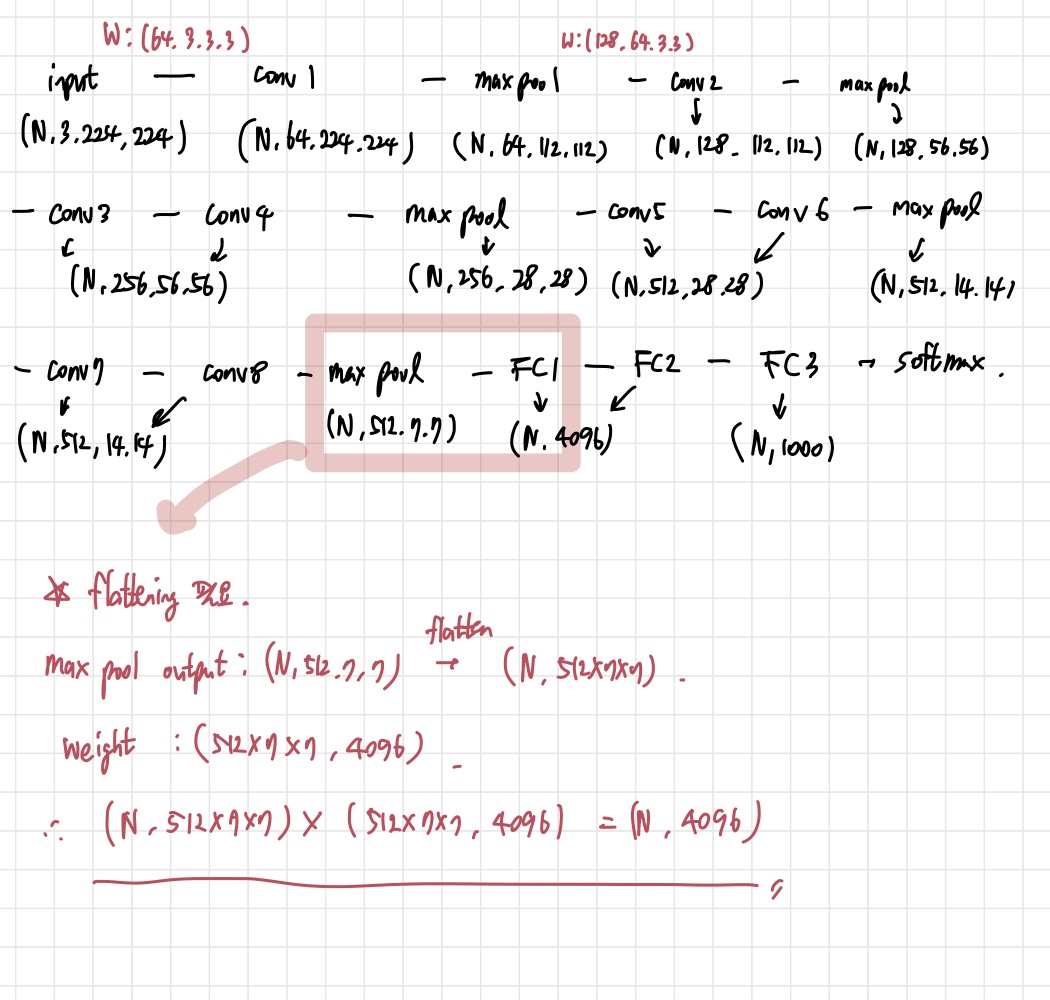 W: (64. 3. 3. 3) W: (128. 64. 3.3)
input — Conv 1 — max pool — Conv 2 — max pool
(N, 3. 224, 224) (N, 64. 224. 224) (N. 64, 112, 112) (N, 128, 112, 112) (N, 128, 56.56)
— Conv3 — Conv4 — max pool — conv5 — Conv 6 — max pool
(N, 256, 56, 56) (N, 256, 28, 28) (N, 512, 28, 28) (N, 512, 14. 14)
— Conv7 — Conv8 — max pool — FC1 — FC2 — FC3 → softmax.
(N, 512, 14. 14) (N, 512. 7. 7) (N. 4096) (N, 1000)
☆ flattening 필요.
flatten
max pool output : (N, 512. 7, 7) → (N, 512×7×7) .
weight : (512×7×7, 4096) .
∴ (N, 512×7×7) × (512×7×7, 4096) = (N, 4096)